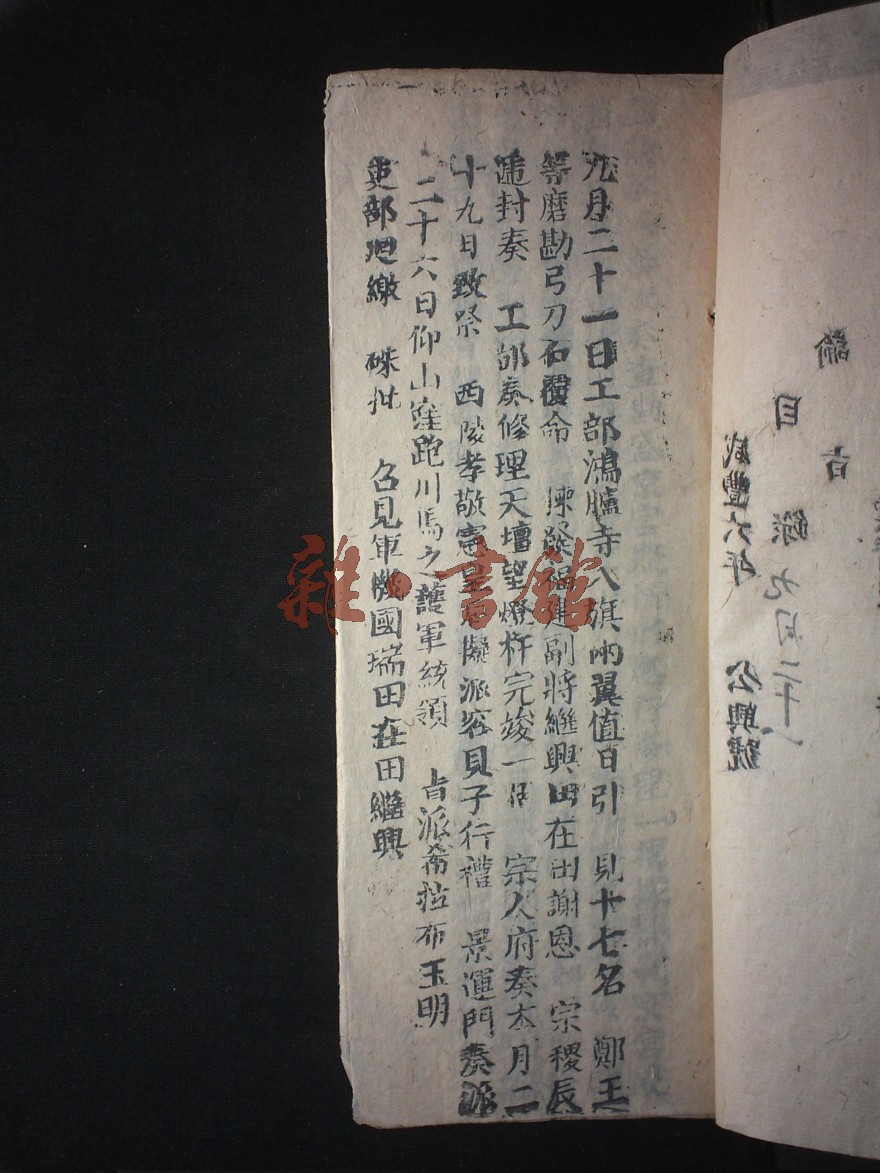 諭旨
目錄 九月二十一
咸豐六年 公興號
九月二十一日工部鴻臚寺八旗兩翼值日引 見十七名 鄭王
等磨勘弓刀石覆命 陳發福建副將繼興田在田謝恩 宗稷辰
遞封奏 工部奏修理天壇望燈杆完竣一 宗人府奏本月二
十九日致祭 西陵孝敬憲皇后擬派容貝子行禮 景運門奏派
二十六日仰山窪跑川馬之護軍統領 旨派希拉布玉明
吏部恭繳 硃批 召見軍機國瑞田在田繼興
雜·書館